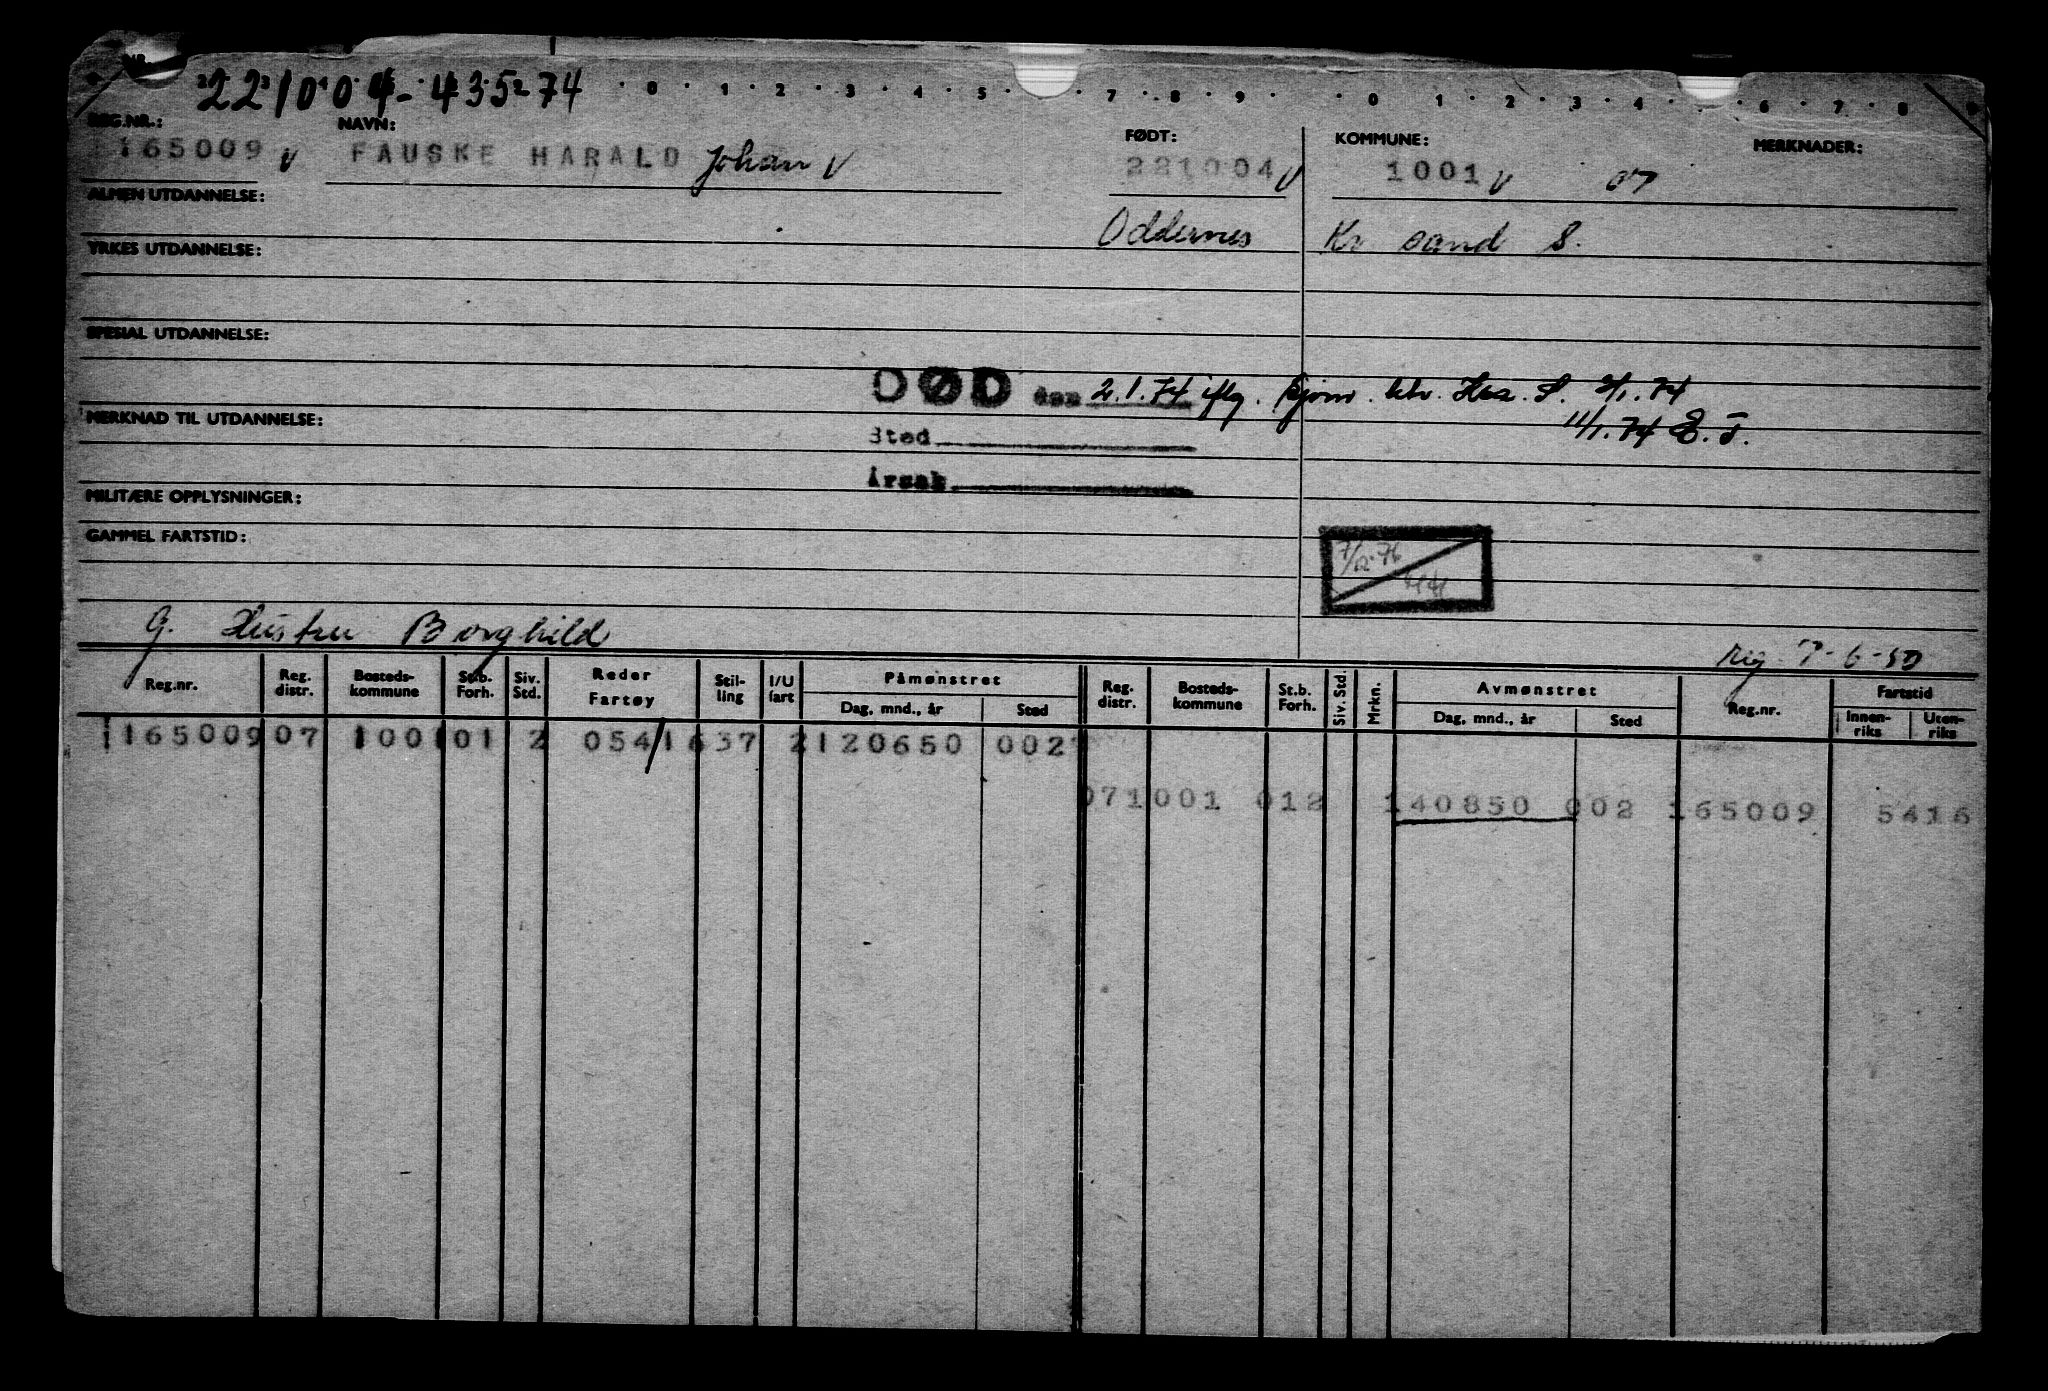 NR.
221004-43574
0 1 2 3 4 5 7 8 9 0 1 2 3 4 6 7 8 9
REG.NR.: NAVN: FØDT: KOMMUNE: MERKNADER:
165009 V FAUSKE HARALD Johan V 221004 V 1001 V 07
ALMEN UTDANNELSE:
Oddernes Kr sand S.
YRKES UTDANNELSE:
SPESIAL UTDANNELSE:
DØD den 2.1.74 iflg. Hva. S. 3/1.74
MERKNAD TIL UTDANNELSE:
11/1.74 E. T.
Sted
Årsak
MILITÆRE OPPLYSNINGER:
GAMMEL FARTSTID:
7/12-76
G. Hustru Borghild
reg. 7-6-50
Reg.nr. Reg. distr. Bosteds-kommune St.b. Forh. Siv. Std. Reder Fartøy Stil-ling I/U fart Påmønstret Dag, mnd., år Sted Reg. distr. Bosteds-kommune St.b. Forh. Siv. Std. Mrkn. Avmønstret Dag, mnd., år Sted Reg.nr. Fartstid Innen-riks Uten-riks
165009 07 1001 01 2 054/1 637 2 120650 002
071001 012 140850 002 165009 5416